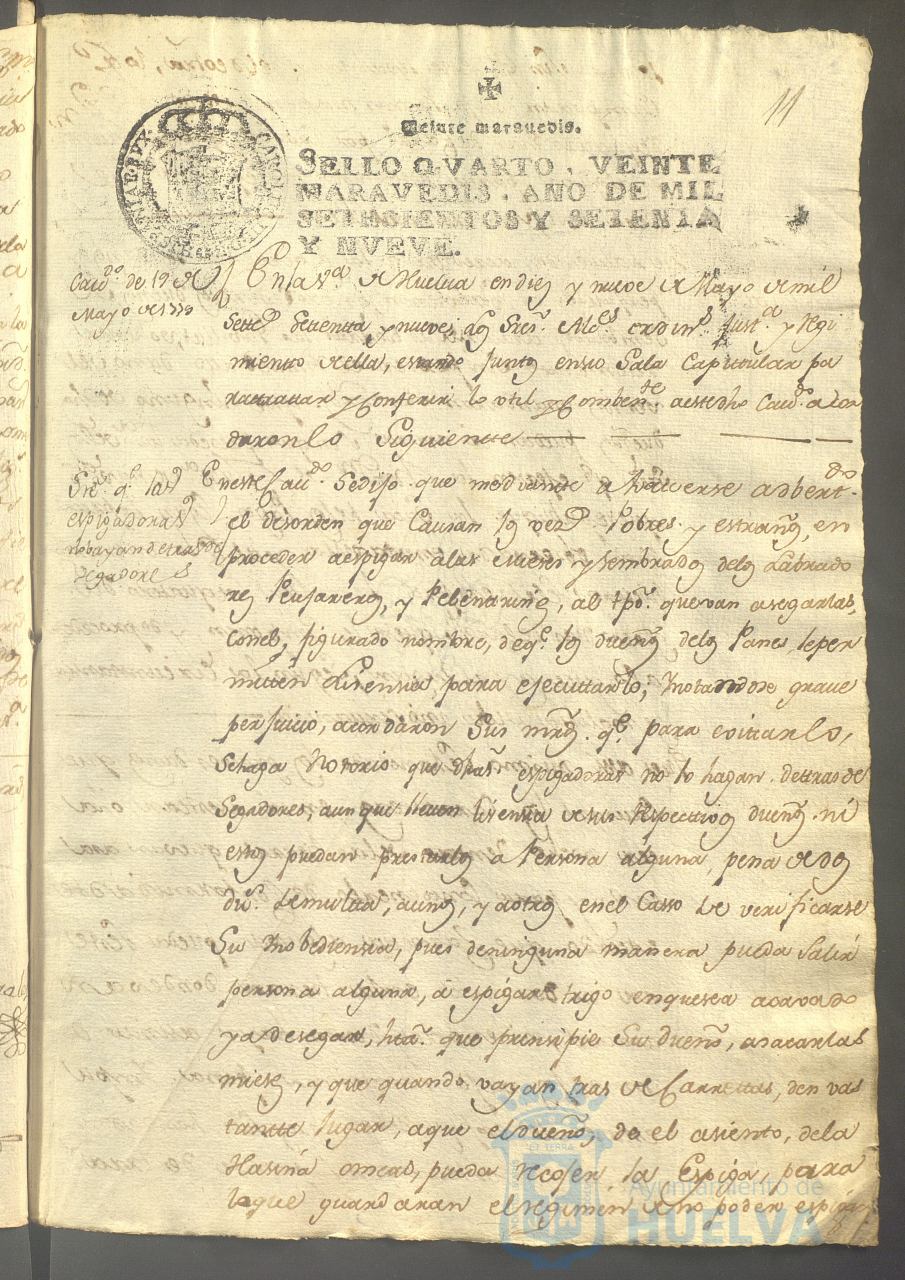 11
Veinte maravedis.
SELLO QVARTO, VEINTE
MARAVEDIS, AÑO DE MIL
SETECIENTOS Y SETENTA
Y NVEVE.
Cavdo. de 19 de
Mayo de 1779
En la Va. de Huelva en diez y nueve de Mayo de mil
settes. settenta y nueve los Sres. Alces. ordins. Justa. y regi
miento de ella, estando juntos en su Sala Capitular pa
ra tratar y Conferir lo vtil y Combente. a este dho Cavdo. acor
daron lo Siguiente
Sre. qe. las
espigadoras
no bayan detras de
segadores
En este Cavdo. Se dijo que mediante a haverse adbertdo.
el desorden que Causan los vezs. Pobres y estraños, en
proceder a espigar a las mieses y sembrados de los Labrado
res Penjareros, y Pelentrines, al tpo. que van a segarlas,
con el figurado nombre, de qe. los dueños de los Panes, le per
miten Lisensia para ejecutarlo; notandose grave
perjuicio, acordaron Sus mrds. qe. para evitarlo,
Se haga Notorio que dhas espigadoras no lo hagan detras de
Segadores, aunque lleven lisensia de sus Respectivos dueños ni
estos puedan prestarlos a Persona alguna, pena de dos
dus. de multa, a unos, y a otros en el Casso de verificarse
Su Ynobediensia, pues de ninguna manera pueda Salir
persona alguna, a espigar trigo en que sea acavado
ya de segar, hta. que prinsipie Su dueño, a sacar las
mieses, y que quando vayan tras de Carrettas, den vas
tantte lugar, a que el dueño, de el asiento, de la
Hasina o meas, pueda recojer la Espiga, para
lo que guardaran el regimen de no poder espigar
Ayuntamiento de
HUELVA